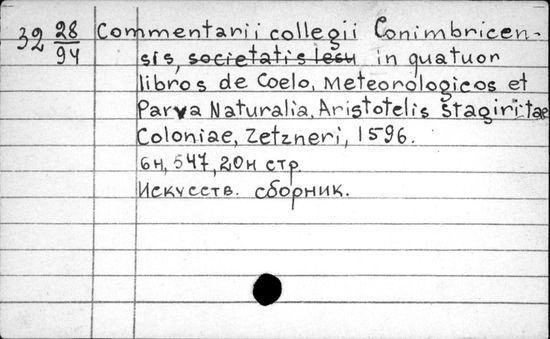 32 28/94 Commentarii collegii Conimbricen-
sis, societatis Iesu in quatuor
libros de Coelo, Meteorologicos et
Parva Naturalia, Aristotelis Stagiritae
Coloniae, Zetzneri, 1596.
6н, 547, 20н стр.
Искусств. сборник.